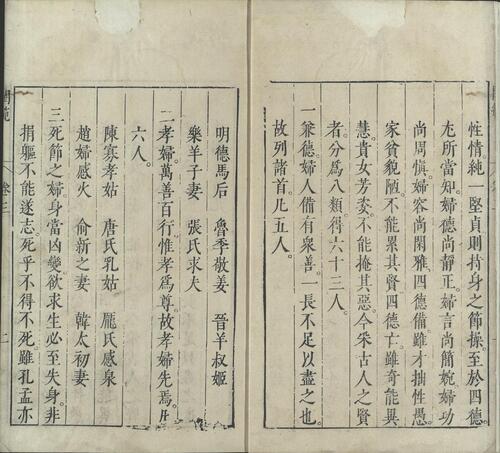 性情純一堅貞則持身之節操至於四德
尤所當知婦德尚靜正婦言尚簡婉婦功
尚周愼婦容尚閑雅四德備雖才拙性愚
家貧貌陋不能累其賢四德亡雖奇能異
慧貴女芳姿不能掩其惡今采古人之賢
者分爲八類得六十三人
一兼德婦人備有衆善一長不足以盡之也
故列諸首凡五人
明德馬后 魯季敬姜 晉羊叔姬
樂羊子妻 張氏求夫
二孝婦萬善百行惟孝爲尊故孝婦先焉凡
六人
陳寡孝姑 唐氏乳姑 龎氏感泉
趙婦感火 俞新之妻 韓太初妻
三死節之婦身當凶變欲求生必至失身非
捐軀不能遂志死乎不得不死雖孔孟亦
閨範 卷三